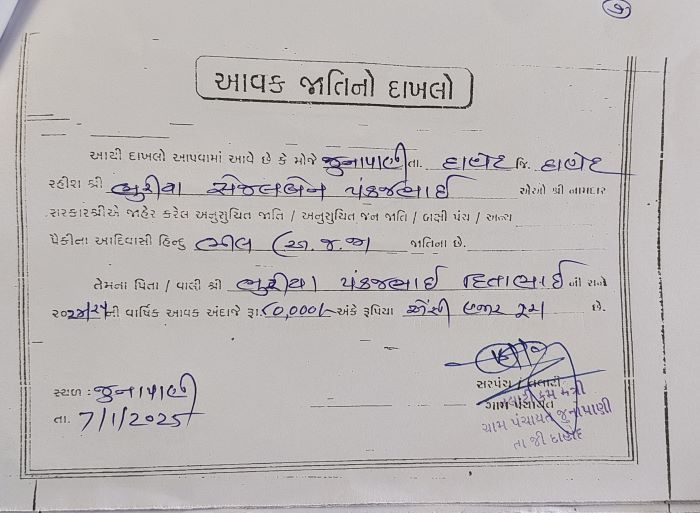 આવક જાતિનો દાખલો
આથી દાખલો આપવામાં આવે છે કે મોજે જુનાપાણી તા. દાહોદ જિ. દાહોદ
રહીશ શ્રી ભુરીયા સેજલબેન પંકજભાઈ એઓ શ્રી નામદાર
સરકારશ્રીએ જાહેર કરેલ અનુસુચિત જાતિ / અનુસુચિત જન જાતિ / બક્ષી પંચ / અન્ય
પૈકીના આદિવાસી હિન્દુ ભીલ (અ.જ.જા) જાતિના છે.
તેમના પિતા / વાલી શ્રી ભુરીયા પંકજભાઈ હિતાભાઈ ની સને
૨૦૨૪/૨૫ની વાર્ષિક આવક અંદાજે રૂા. ૮૦,૦૦૦/- અંકે રૂપિયા એંસી હજાર પુરા છે.
સ્થળ : જુનાપાણી
તા. 7/1/2025
સરપંચ / તલાટી
ગ્રામ પંચાયત
તલાટી કમ મંત્રી
ગ્રામ પંચાયત જુનાપાણી
તા જી દાહોદ